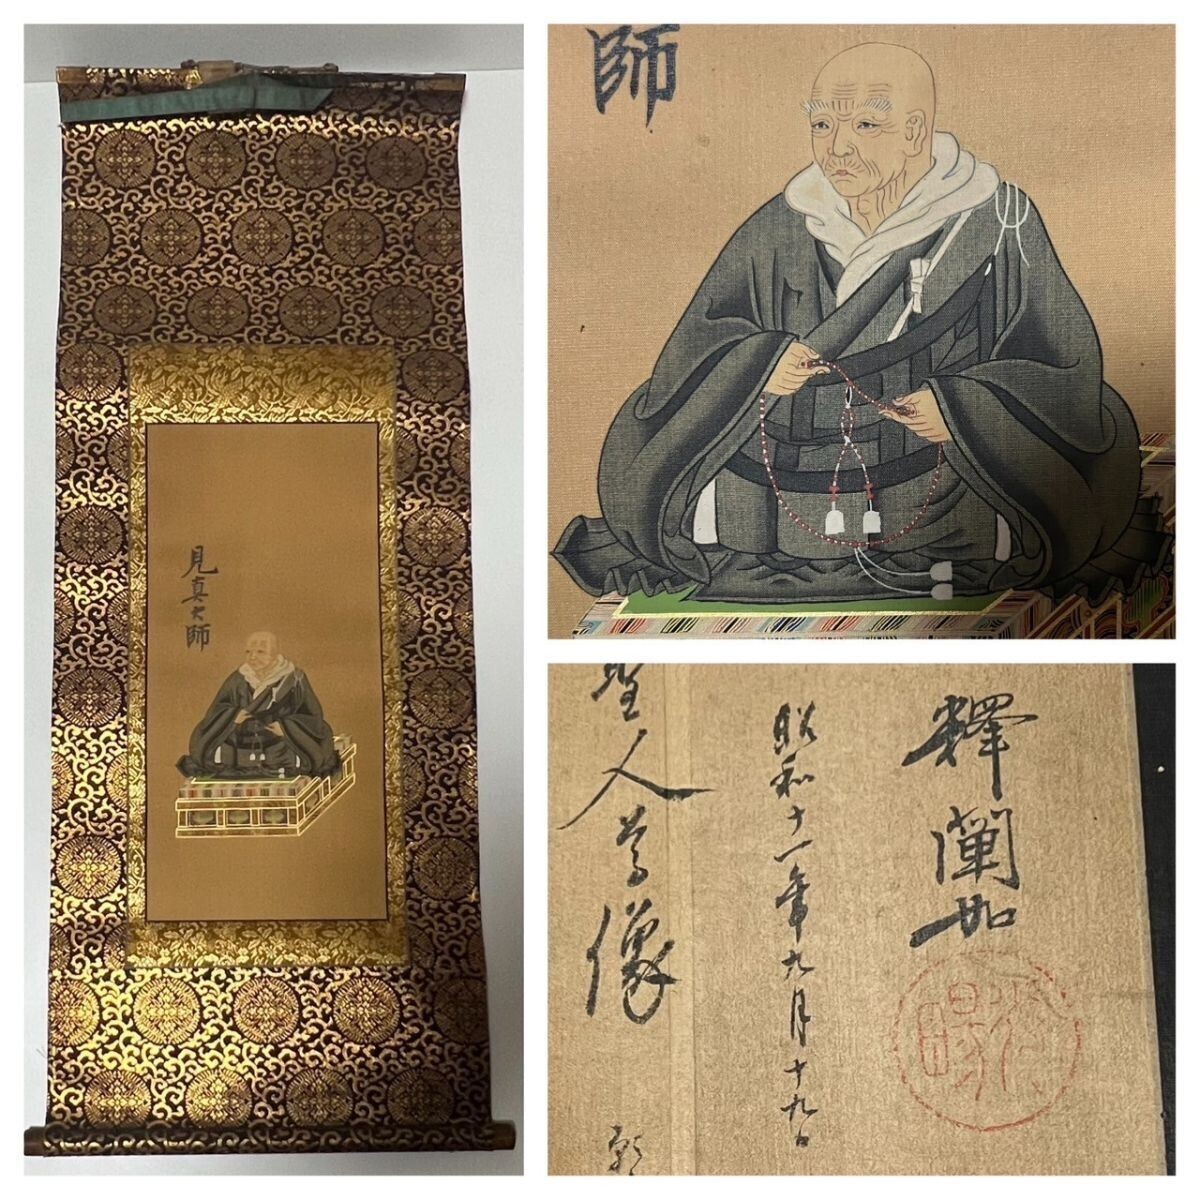 見真大師
師
釋闡如
昭和十一年九月十九日
聖人尊像